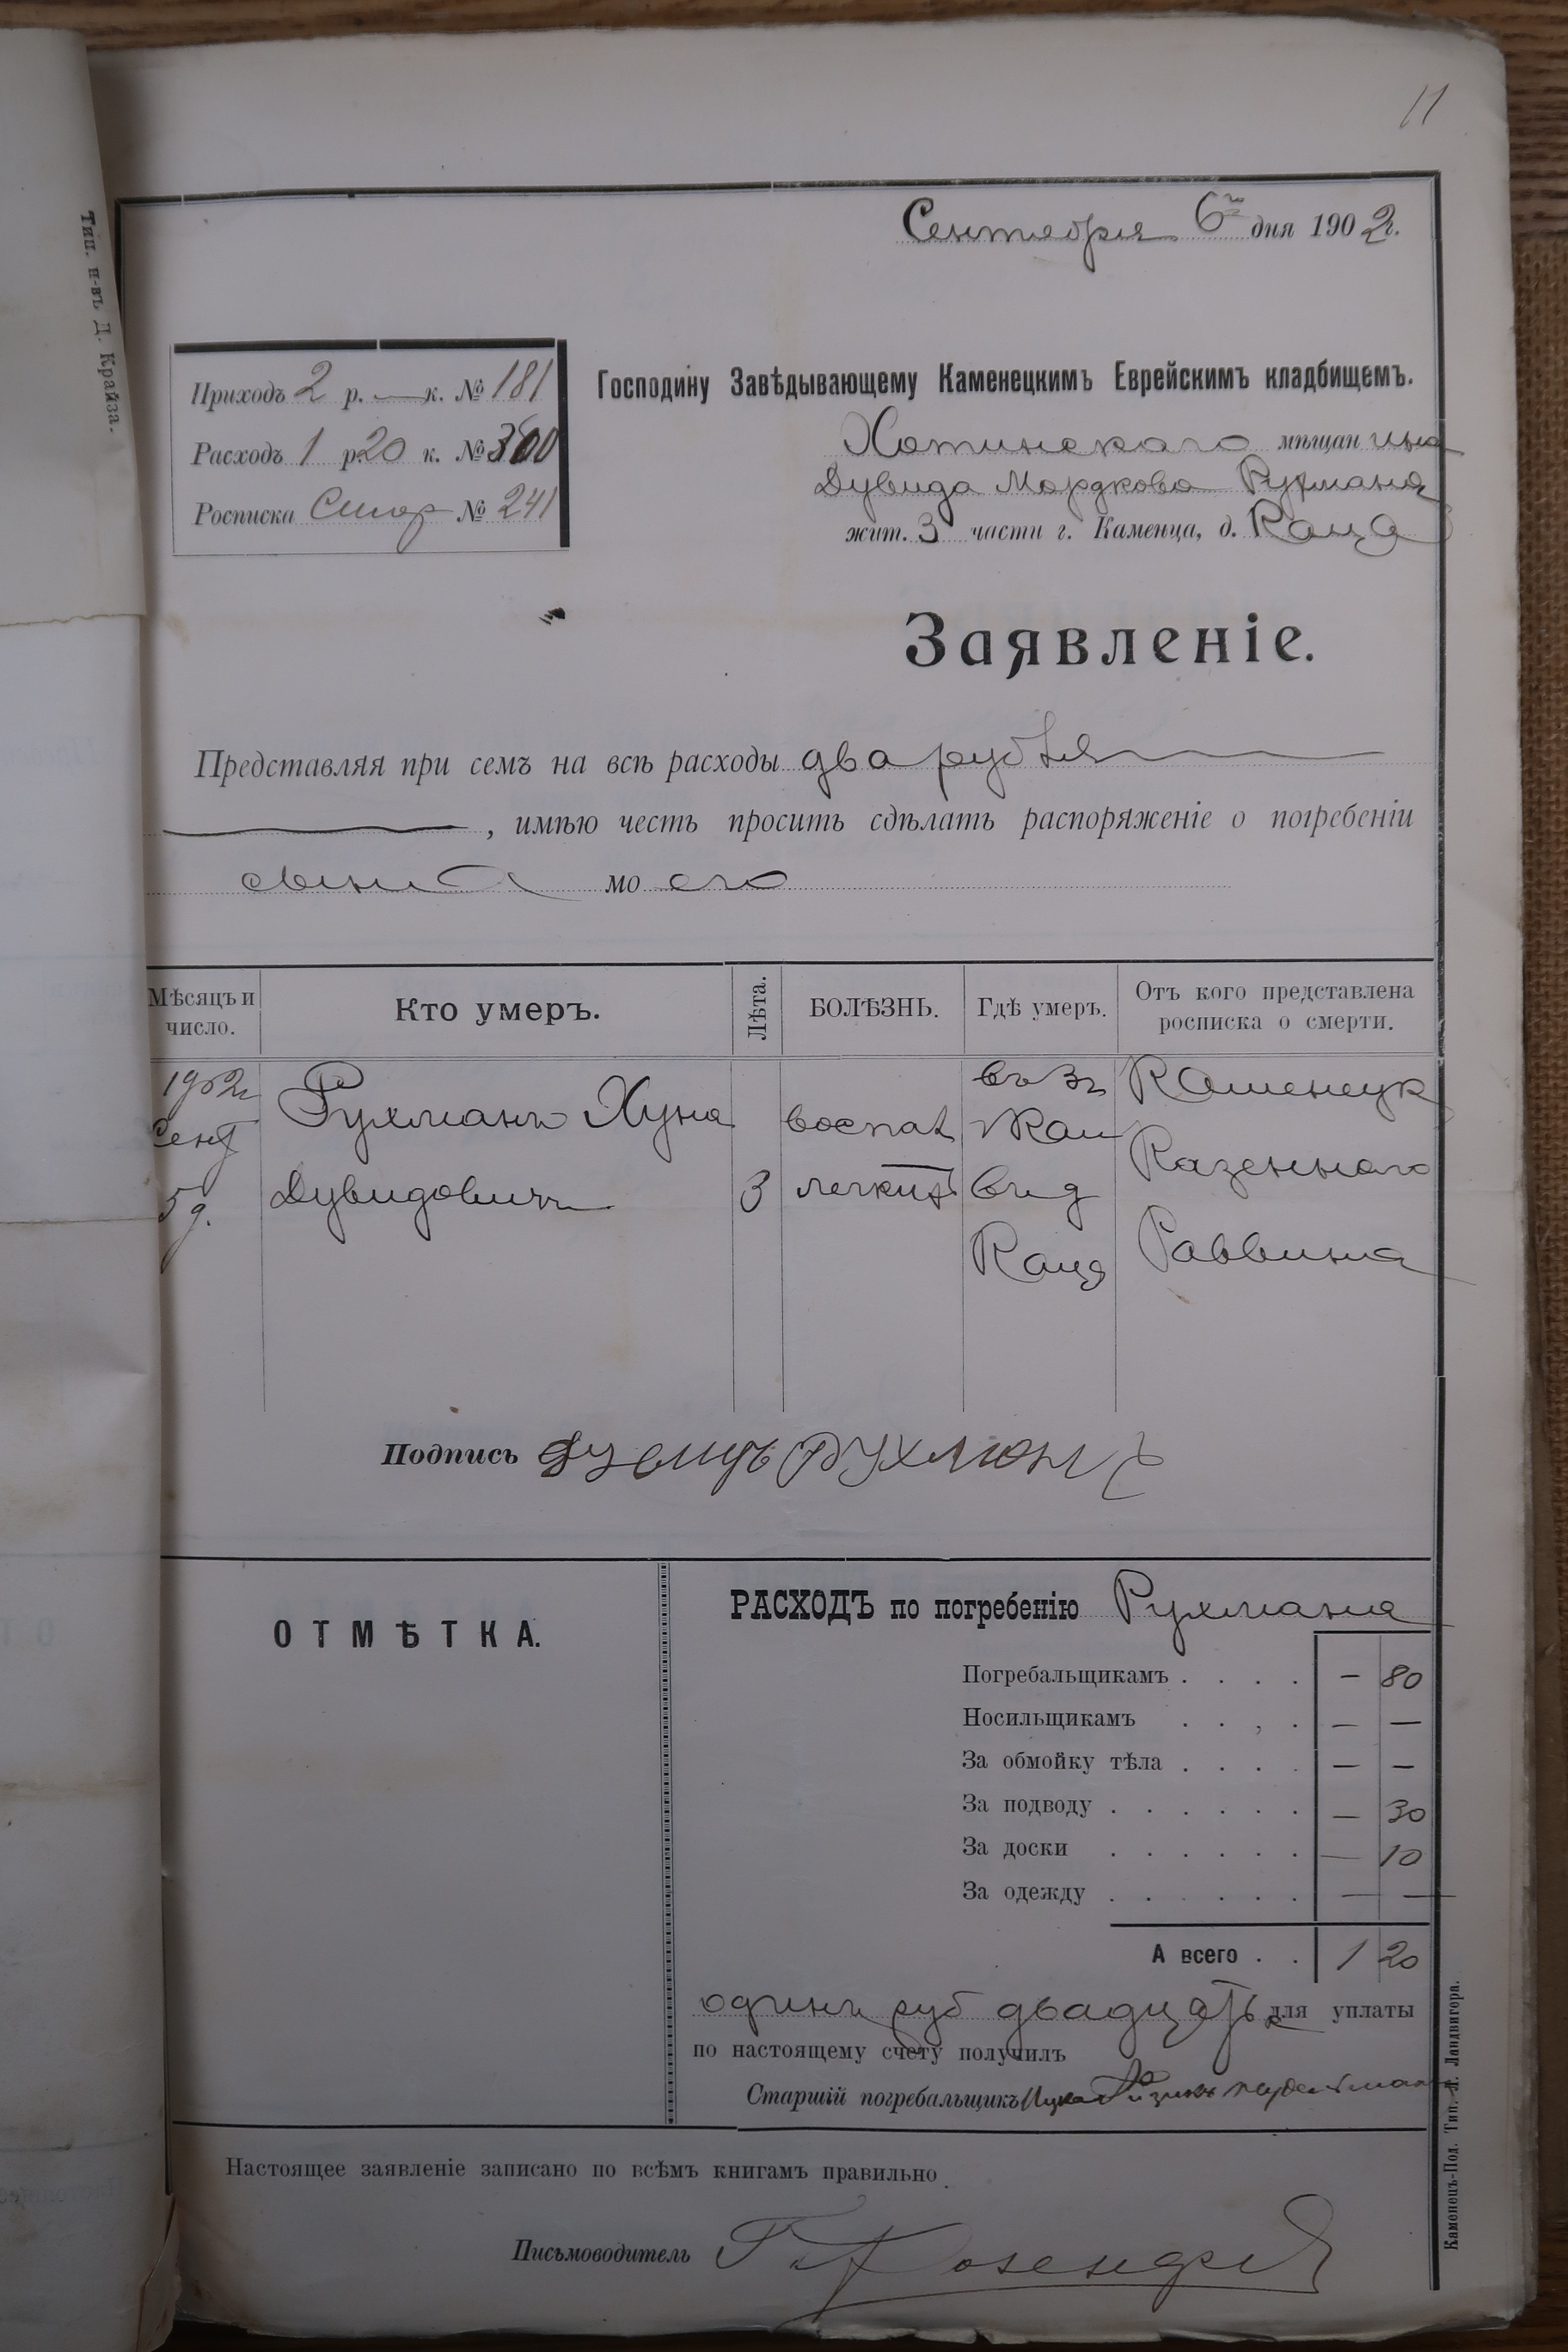 11
Тип. н-въ Д. Крайза.
Сентября 6го дня 1902 г.
Приходъ 2 р. — к. № 181
Расходъ 1 р. 20 к. № 300
Росписка Смер № 241
Господину Завѣдывающему Каменецкимъ Еврейскимъ кладбищемъ.
Хотинского мѣщанина
Дувида Мордкова Рухмана
жит. 3 части г. Каменца, д. Каца
Заявленіе.
Представляя при семъ на всѣ расходы два рубля
, имѣю честь просить сдѣлать распоряженіе о погребеніи
сына моего
Мѣсяцъ и число.
Кто умеръ.
Лѣта.
БОЛѢЗНЬ.
Гдѣ умеръ.
Отъ кого представлена росписка о смерти.
1902 г
Сент
5 д.
Рухманъ Хуна
Дувидовичъ
3
воспал
легких
въ 3ч
Кам
въ д
Каца
Каменецк
Казенного
Раввина
Подпись Дувидъ Рухманъ
ОТМѢТКА.
РАСХОДЪ по погребенію Рухмана
Погребальщикамъ . . . . — 80
Носильщикамъ . . , . — —
За обмойку тѣла . . . . — —
За подводу . . . . . . — 30
За доски . . . . . . — 10
За одежду . . . . . . — —
А всего . . 1 20
одинъ руб двадцать к для уплаты
по настоящему счету получилъ
Старшій погребальщикъ
Настоящее заявленіе записано по всѣмъ книгамъ правильно.
Письмоводитель
Каменецъ-Под. Тип. Л. Ландвигера.